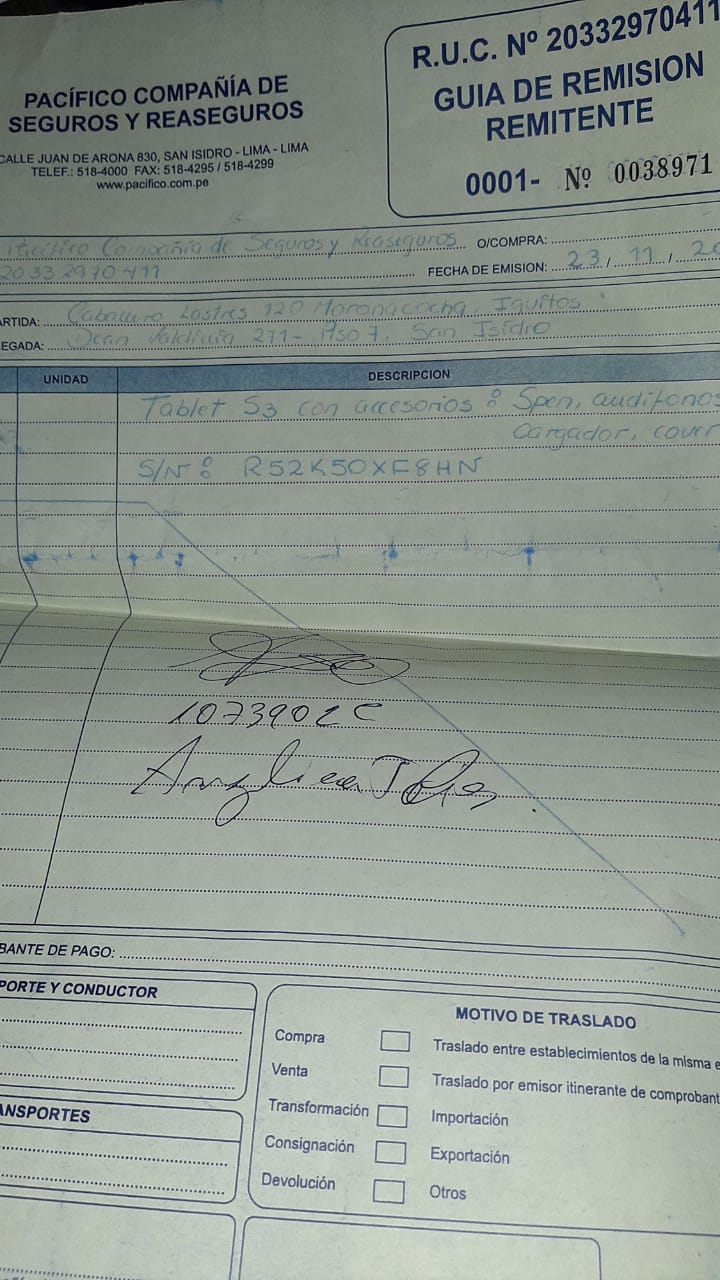 R.U.C. Nº 20332970411
GUIA DE REMISION
REMITENTE
0001- Nº 0038971
PACÍFICO COMPAÑÍA DE
SEGUROS Y REASEGUROS
CALLE JUAN DE ARONA 830, SAN ISIDRO - LIMA - LIMA
TELEF.: 518-4000 FAX: 518-4295 / 518-4299
www.pacifico.com.pe
Pacífico Compañía de Seguros y Reaseguros O/COMPRA:
20332970411 FECHA DE EMISION: 23 / 11 / 20
ARTIDA: Caballero Lastres 120 Moronacocha, Iquitos
EGADA: Dean Valdivia 271 - Piso 7, San Isidro
UNIDAD DESCRIPCION
Tablet S3 con accesorios : Spen, audifonos
Cargador, cover
S/N : R52K50XF8HN
Angelica
BANTE DE PAGO:
PORTE Y CONDUCTOR
ANSPORTES
MOTIVO DE TRASLADO
Compra Traslado entre establecimientos de la misma e
Venta Traslado por emisor itinerante de comprobant
Transformación Importación
Consignación Exportación
Devolución Otros